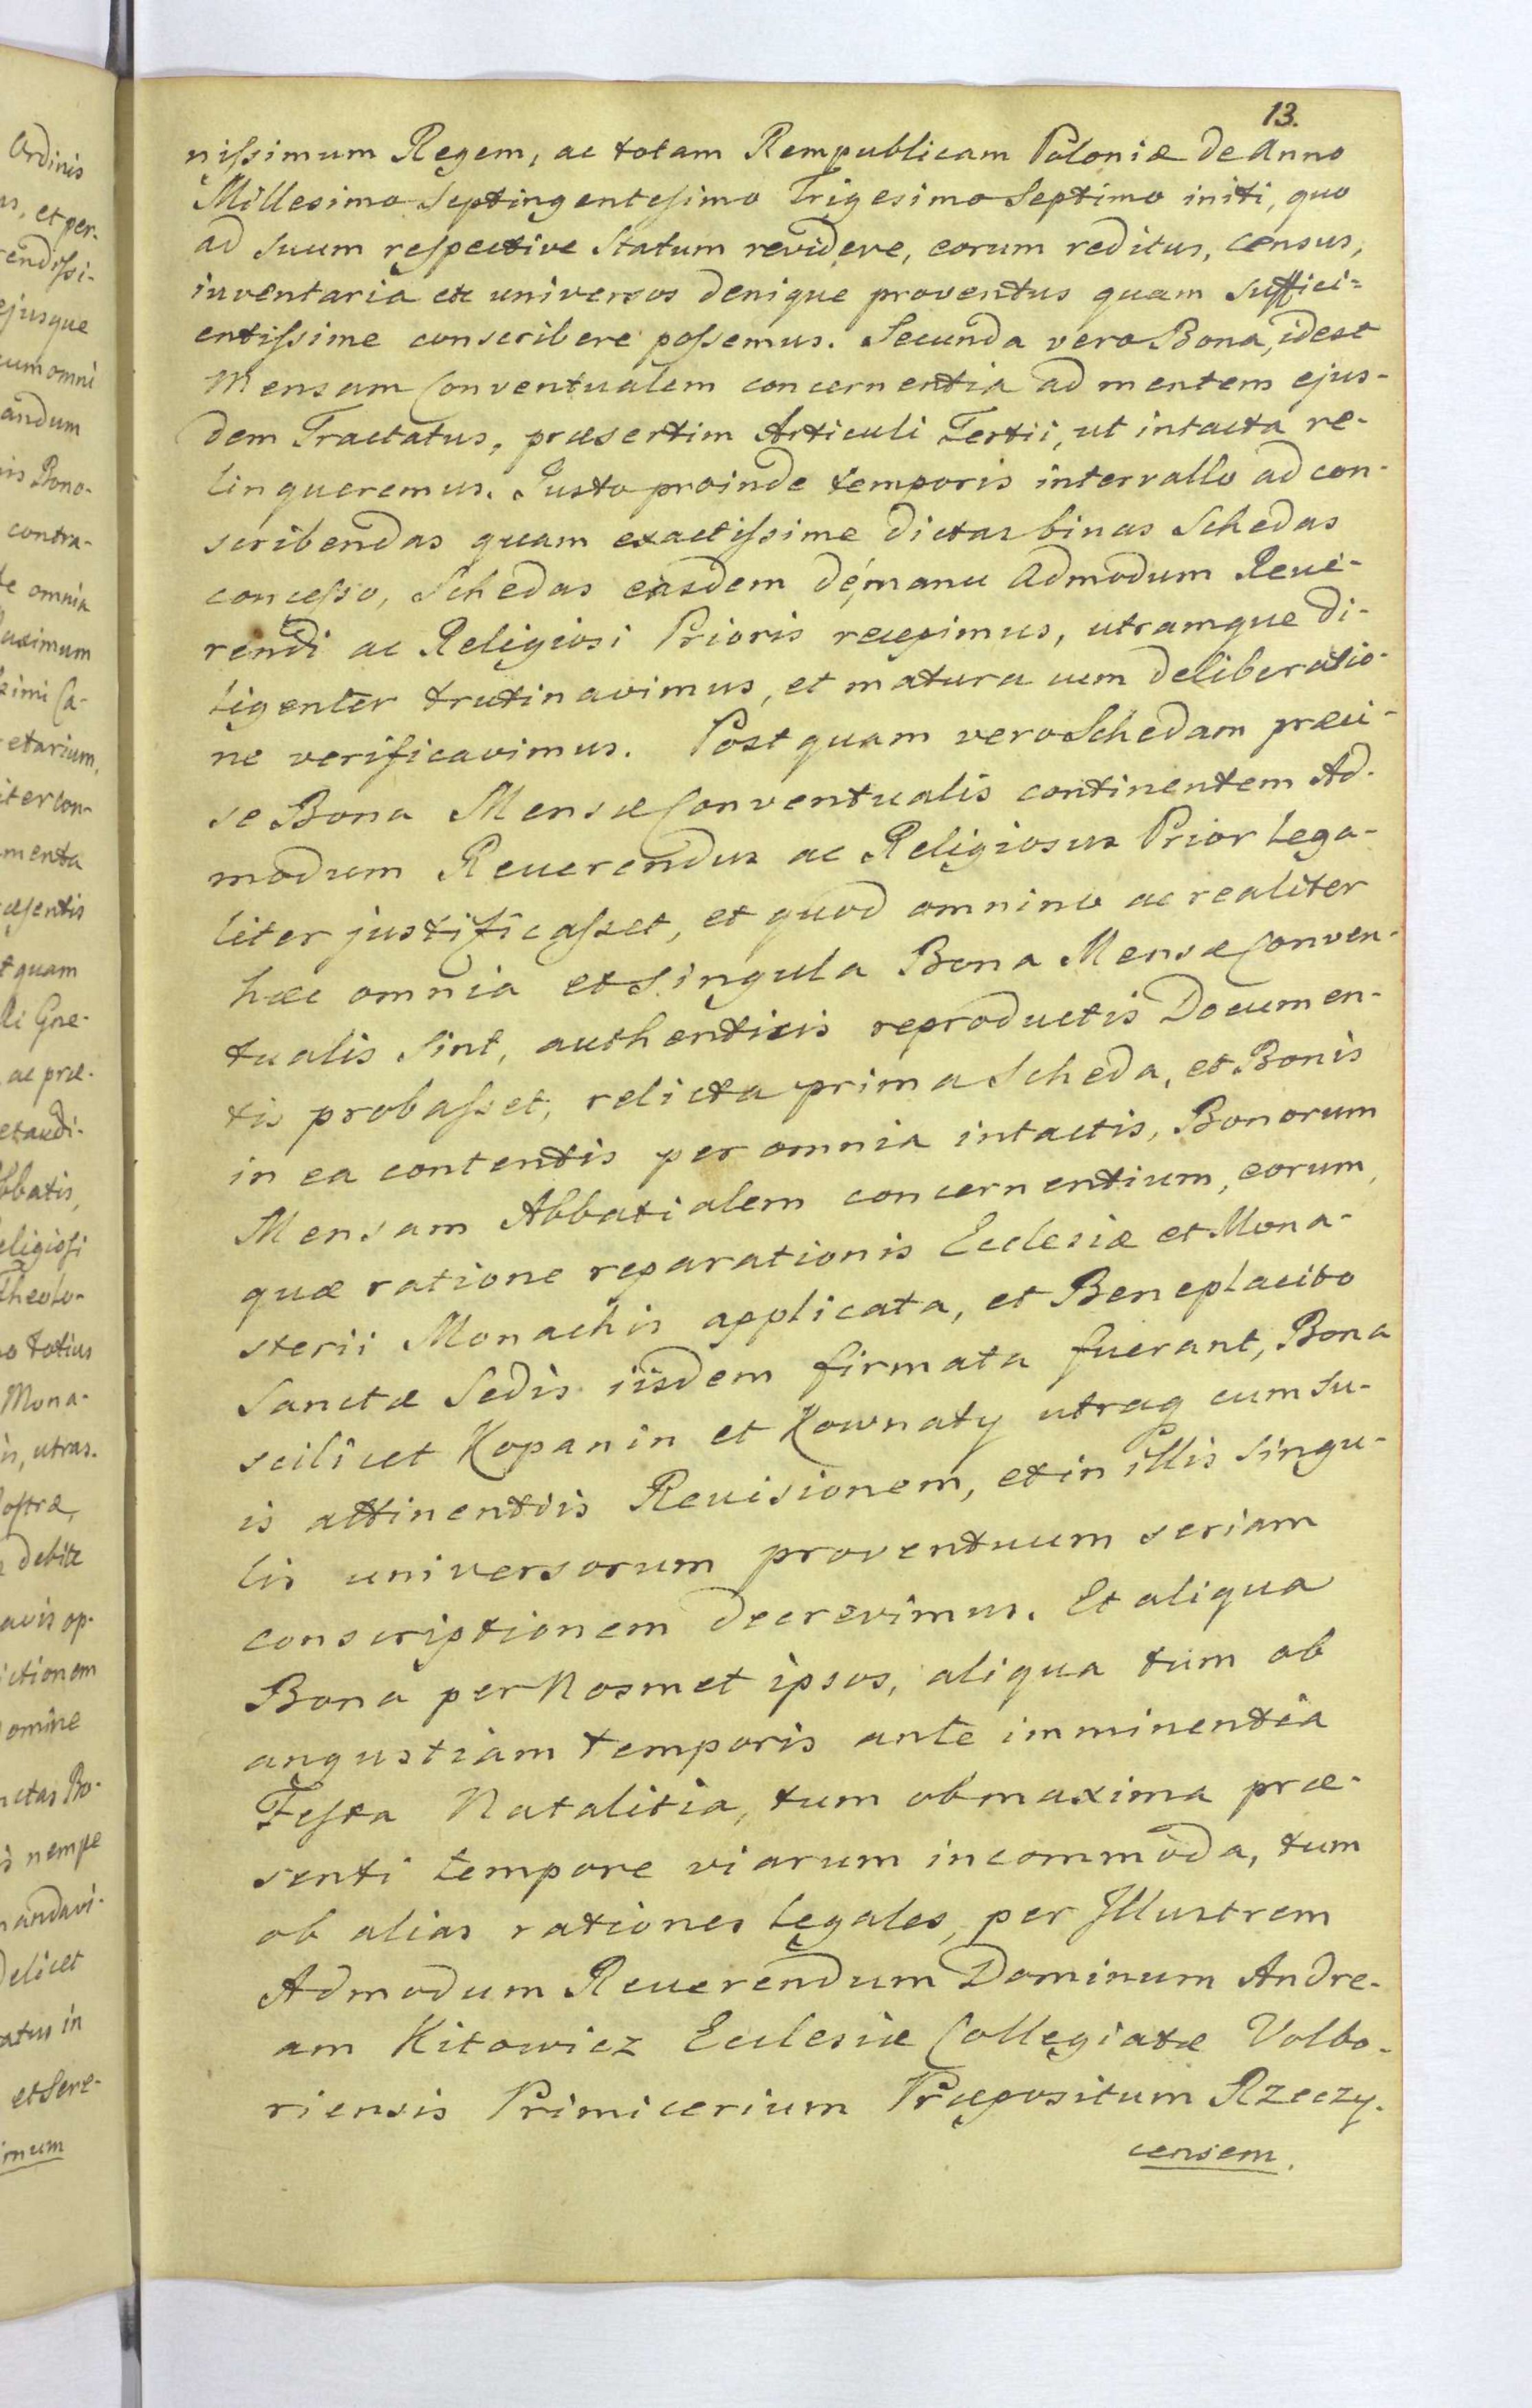 13.
nissimum Regem, ac totam Rempublicam Poloniæ de Anno
Millesimo Septingentesimo Trigesimo Septimo initi, quo
ad suum respective Statum revidere, eorum reditus, census,
inventaria etc universos denique proventus quam suffici=
entissime conscribere possemus. Secunda vero Bona, idest
Mensam Conventualem concernentia ad mentem ejus-
dem Tractatus, præsertim Articuli Tertii, ut intacta re-
linqueremus. Justo proinde temporis intervallo ad con-
scribendas quam exactissime dictas binas Schedas
concesso, Schedas easdem de manu Admodum Reve-
rendi ac Religiosi Prioris recepimus, utramque di-
ligenter trutinavimus, et matura cum deliberatio-
ne verificavimus. Postquam vero Schedam præci-
se Bona Mensæ Conventualis continentem Ad-
modum Reuerendus ac Religiosus Prior lega-
liter justificasset, et quod omnino ac realiter
hæc omnia et singula Bona Mensæ Conven-
tualis sint, authenticis reproductis Documen-
tis probasset, relicta prima Scheda, et Bonis
in ea contentis per omnia intactis, Bonorum
Mensam Abbatialem concernentium, eorum,
quæ ratione reparationis Ecclesiæ et Mona-
sterii Monachis applicata, et Beneplacito
Sanctæ Sedis iisdem firmata fuerant, Bona
scilicet Kopanin et Kownaty utraq cum su-
is attinentiis Reuisionem, et in illis singu-
lis universorum proventuum seriam
conscriptionem decrevimus. Et aliqua
Bona per Nosmet ipsos, aliqua tum ob
angustiam temporis ante imminentia
Festa Natalitia, tum ob maxima præ-
senti tempore viarum incommoda, tum
ob alias rationes legales, per Illustrem
Admodum Reuerendum Dominum Andre-
am Kitowicz Ecclesiæ Collegiatæ Volbo-
riensis Primicerium Præpositum Rzeczy-
censem.